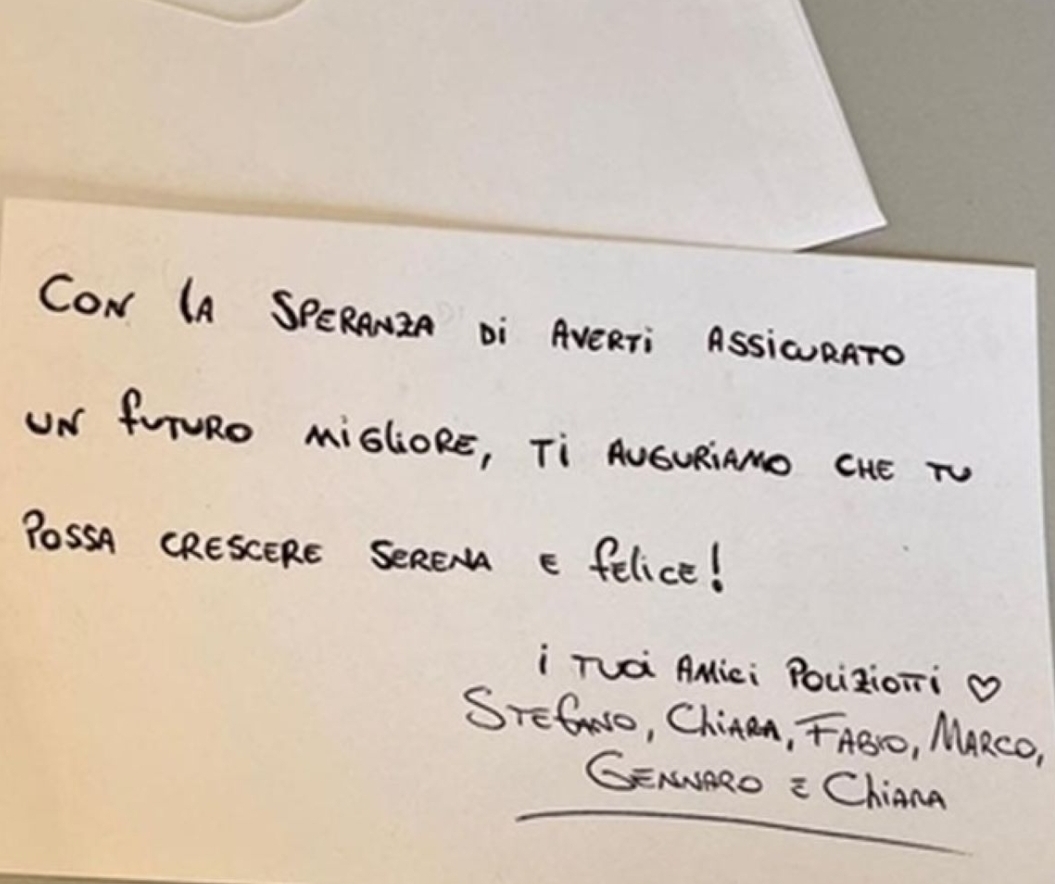 CON LA SPERANZA Di AVERTi ASSiCURATO
UN fUTURO MiGliORE, Ti AUGURiAMO CHE TU
POSSA CRESCERE SERENA E feliCE!
i TUOi AMici POLiZiOTTi ♡
STEfANO, ChiARA, FABIO, MARCO,
GENNARO E ChiARA